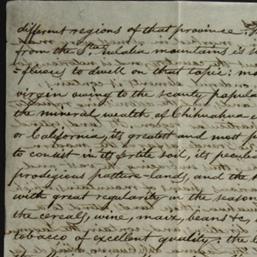 different regions of that province.
from the Sta. Eulalia mountains is
to dwell on that topic:
virgin owing to the scanty popula
the mineral wealth of Chihuahua
or California, its greatest and most
to consist in its fertile soil, its pecul
prodigious pasture-lands, and the
with great regularity in the season
the cereals, wine, maiz, beans &c,
tobacco of excellent quality: the